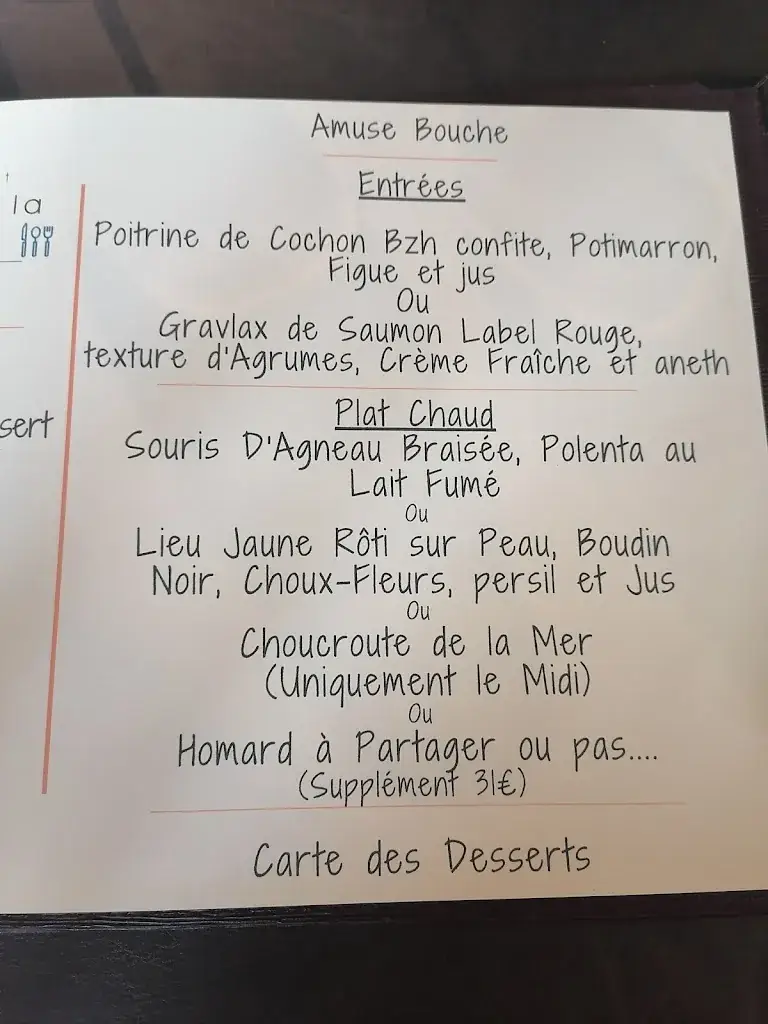 la
sert
Amuse Bouche
Entrées
Poitrine de Cochon Bzh confite, Potimarron,
Figue et jus
Ou
Gravlax de Saumon Label Rouge,
texture d'Agrumes, Crème Fraîche et aneth
Plat Chaud
Souris D'Agneau Braisée, Polenta au
Lait Fumé
Ou
Lieu Jaune Rôti sur Peau, Boudin
Noir, Choux-Fleurs, persil et Jus
Ou
Choucroute de la Mer
(Uniquement le Midi)
Ou
Homard à Partager ou pas....
(Supplément 31€)
Carte des Desserts